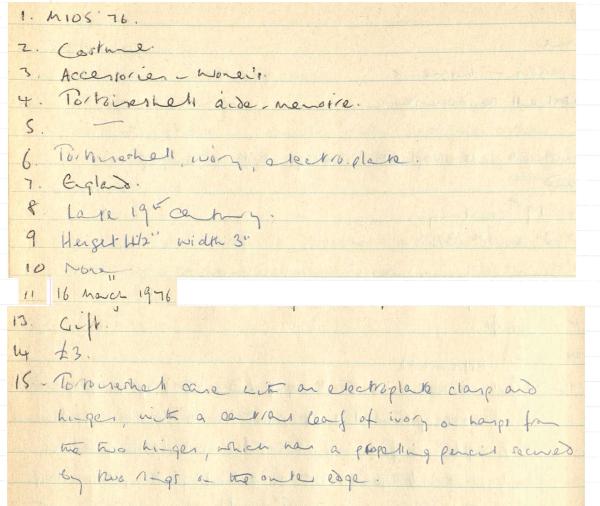 1. M105'76.
2. Costume.
3. Accessories - women's.
4. Tortoiseshell aide-memoire.
5. —
6. Tortoiseshell, ivory, electroplate.
7. England.
8 Late 19th century.
9 Height 4½" width 3"
10 None
11 16 March 1976
13. Gift.
14 £3.
15 - Tortoiseshell case with an electroplate clasp and
hinges, with a central leaf of ivory on hangs from
the two hinges, which has a propelling pencil secured
by two rings on the outer edge.